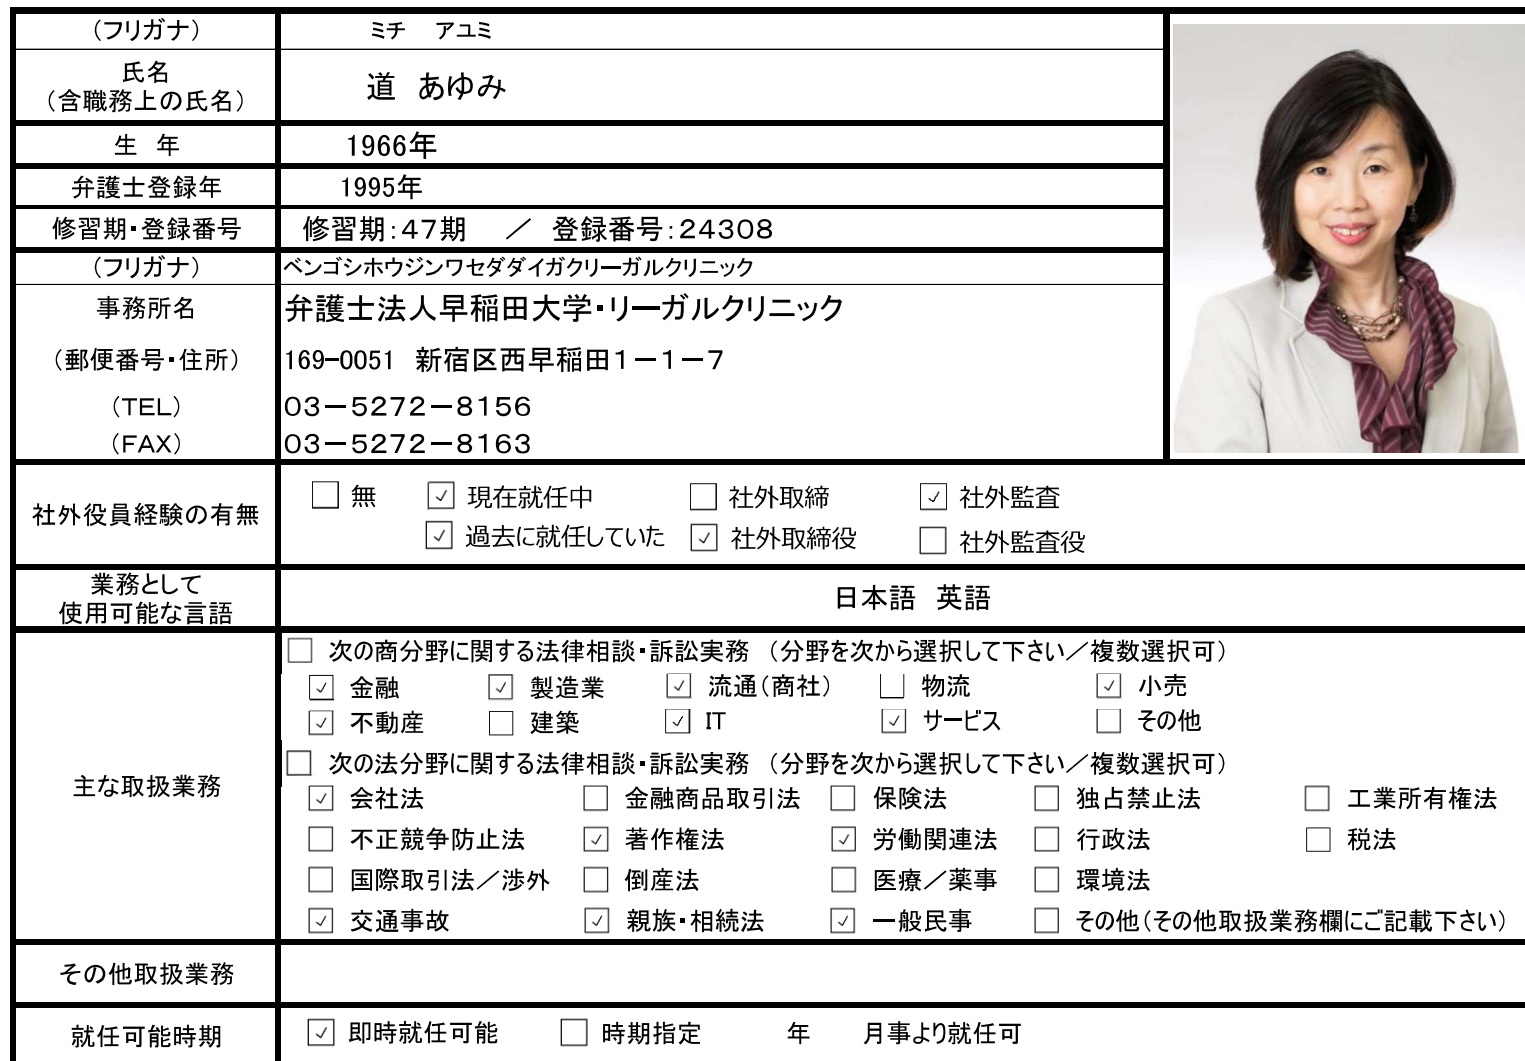 （フリガナ） ミチ　アユミ
氏名 道　あゆみ
（含職務上の氏名）
生　年 1966年
弁護士登録年 1995年
修習期・登録番号 修習期：４７期　／　登録番号：２４３０８
（フリガナ） ベンゴシホウジンワセダダイガクリーガルクリニック
事務所名 弁護士法人早稲田大学・リーガルクリニック
（郵便番号・住所） 169-0051　新宿区西早稲田１－１－７
（TEL） ０３－５２７２－８１５６
（FAX） ０３－５２７２－８１６３
社外役員経験の有無
☐ 無 ☑ 現在就任中 ☐ 社外取締 ☑ 社外監査
☑ 過去に就任していた ☑ 社外取締役 ☐ 社外監査役
業務として
使用可能な言語 日本語　英語
主な取扱業務
☐ 次の商分野に関する法律相談・訴訟実務　（分野を次から選択して下さい／複数選択可）
☑ 金融 ☑ 製造業 ☑ 流通（商社） ☐ 物流 ☑ 小売
☑ 不動産 ☐ 建築 ☑ IT ☑ サービス ☐ その他
☐ 次の法分野に関する法律相談・訴訟実務　（分野を次から選択して下さい／複数選択可）
☑ 会社法 ☐ 金融商品取引法 ☐ 保険法 ☐ 独占禁止法 ☐ 工業所有権法
☐ 不正競争防止法 ☑ 著作権法 ☑ 労働関連法 ☐ 行政法 ☐ 税法
☐ 国際取引法／渉外 ☐ 倒産法 ☐ 医療／薬事 ☐ 環境法
☑ 交通事故 ☑ 親族・相続法 ☑ 一般民事 ☐ その他（その他取扱業務欄にご記載下さい）
その他取扱業務
就任可能時期 ☑ 即時就任可能 ☐ 時期指定　　年　　月事より就任可